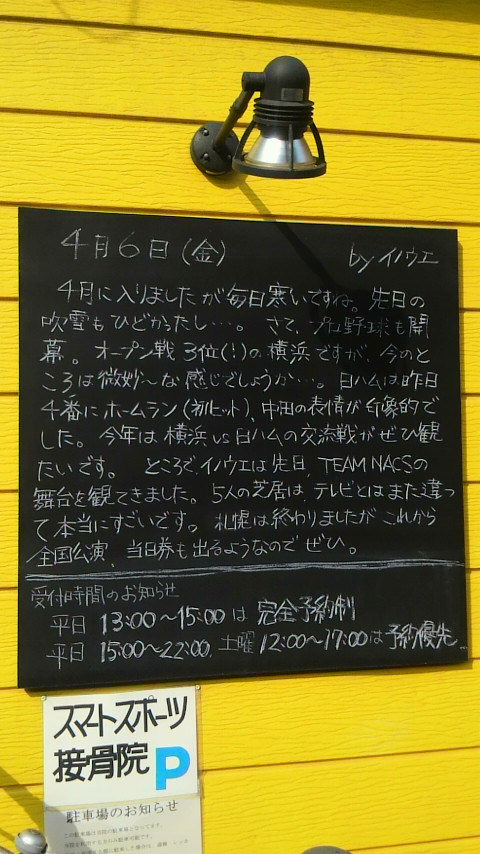 4月6日(金) by イノウエ
4月に入りましたが毎日寒いですね。先日の
吹雪もひどかったし…。さて、プロ野球も開
幕。オープン戦3位(!)の横浜ですが、今のと
ころは微妙〜な感じでしょうか…。日ハムは昨日
4番にホームラン(初ヒット)、中田の表情が印象的で
した。今年は横浜vs日ハムの交流戦がぜひ観
たいです。ところでイノウエは先日、TEAM NACSの
舞台を観てきました。5人の芝居は、テレビとはまた違っ
て本当にすごいですっ。札幌は終わりましたがこれから
全国公演、当日券も出るようなのでぜひ。
受付時間のお知らせ
平日 13:00〜15:00は 完全予約制
平日 15:00〜22:00、土曜 12:00〜17:00は予約優先
スマートスポーツ
接骨院 P
駐車場のお知らせ
この駐車場は当院の駐車場となってます。